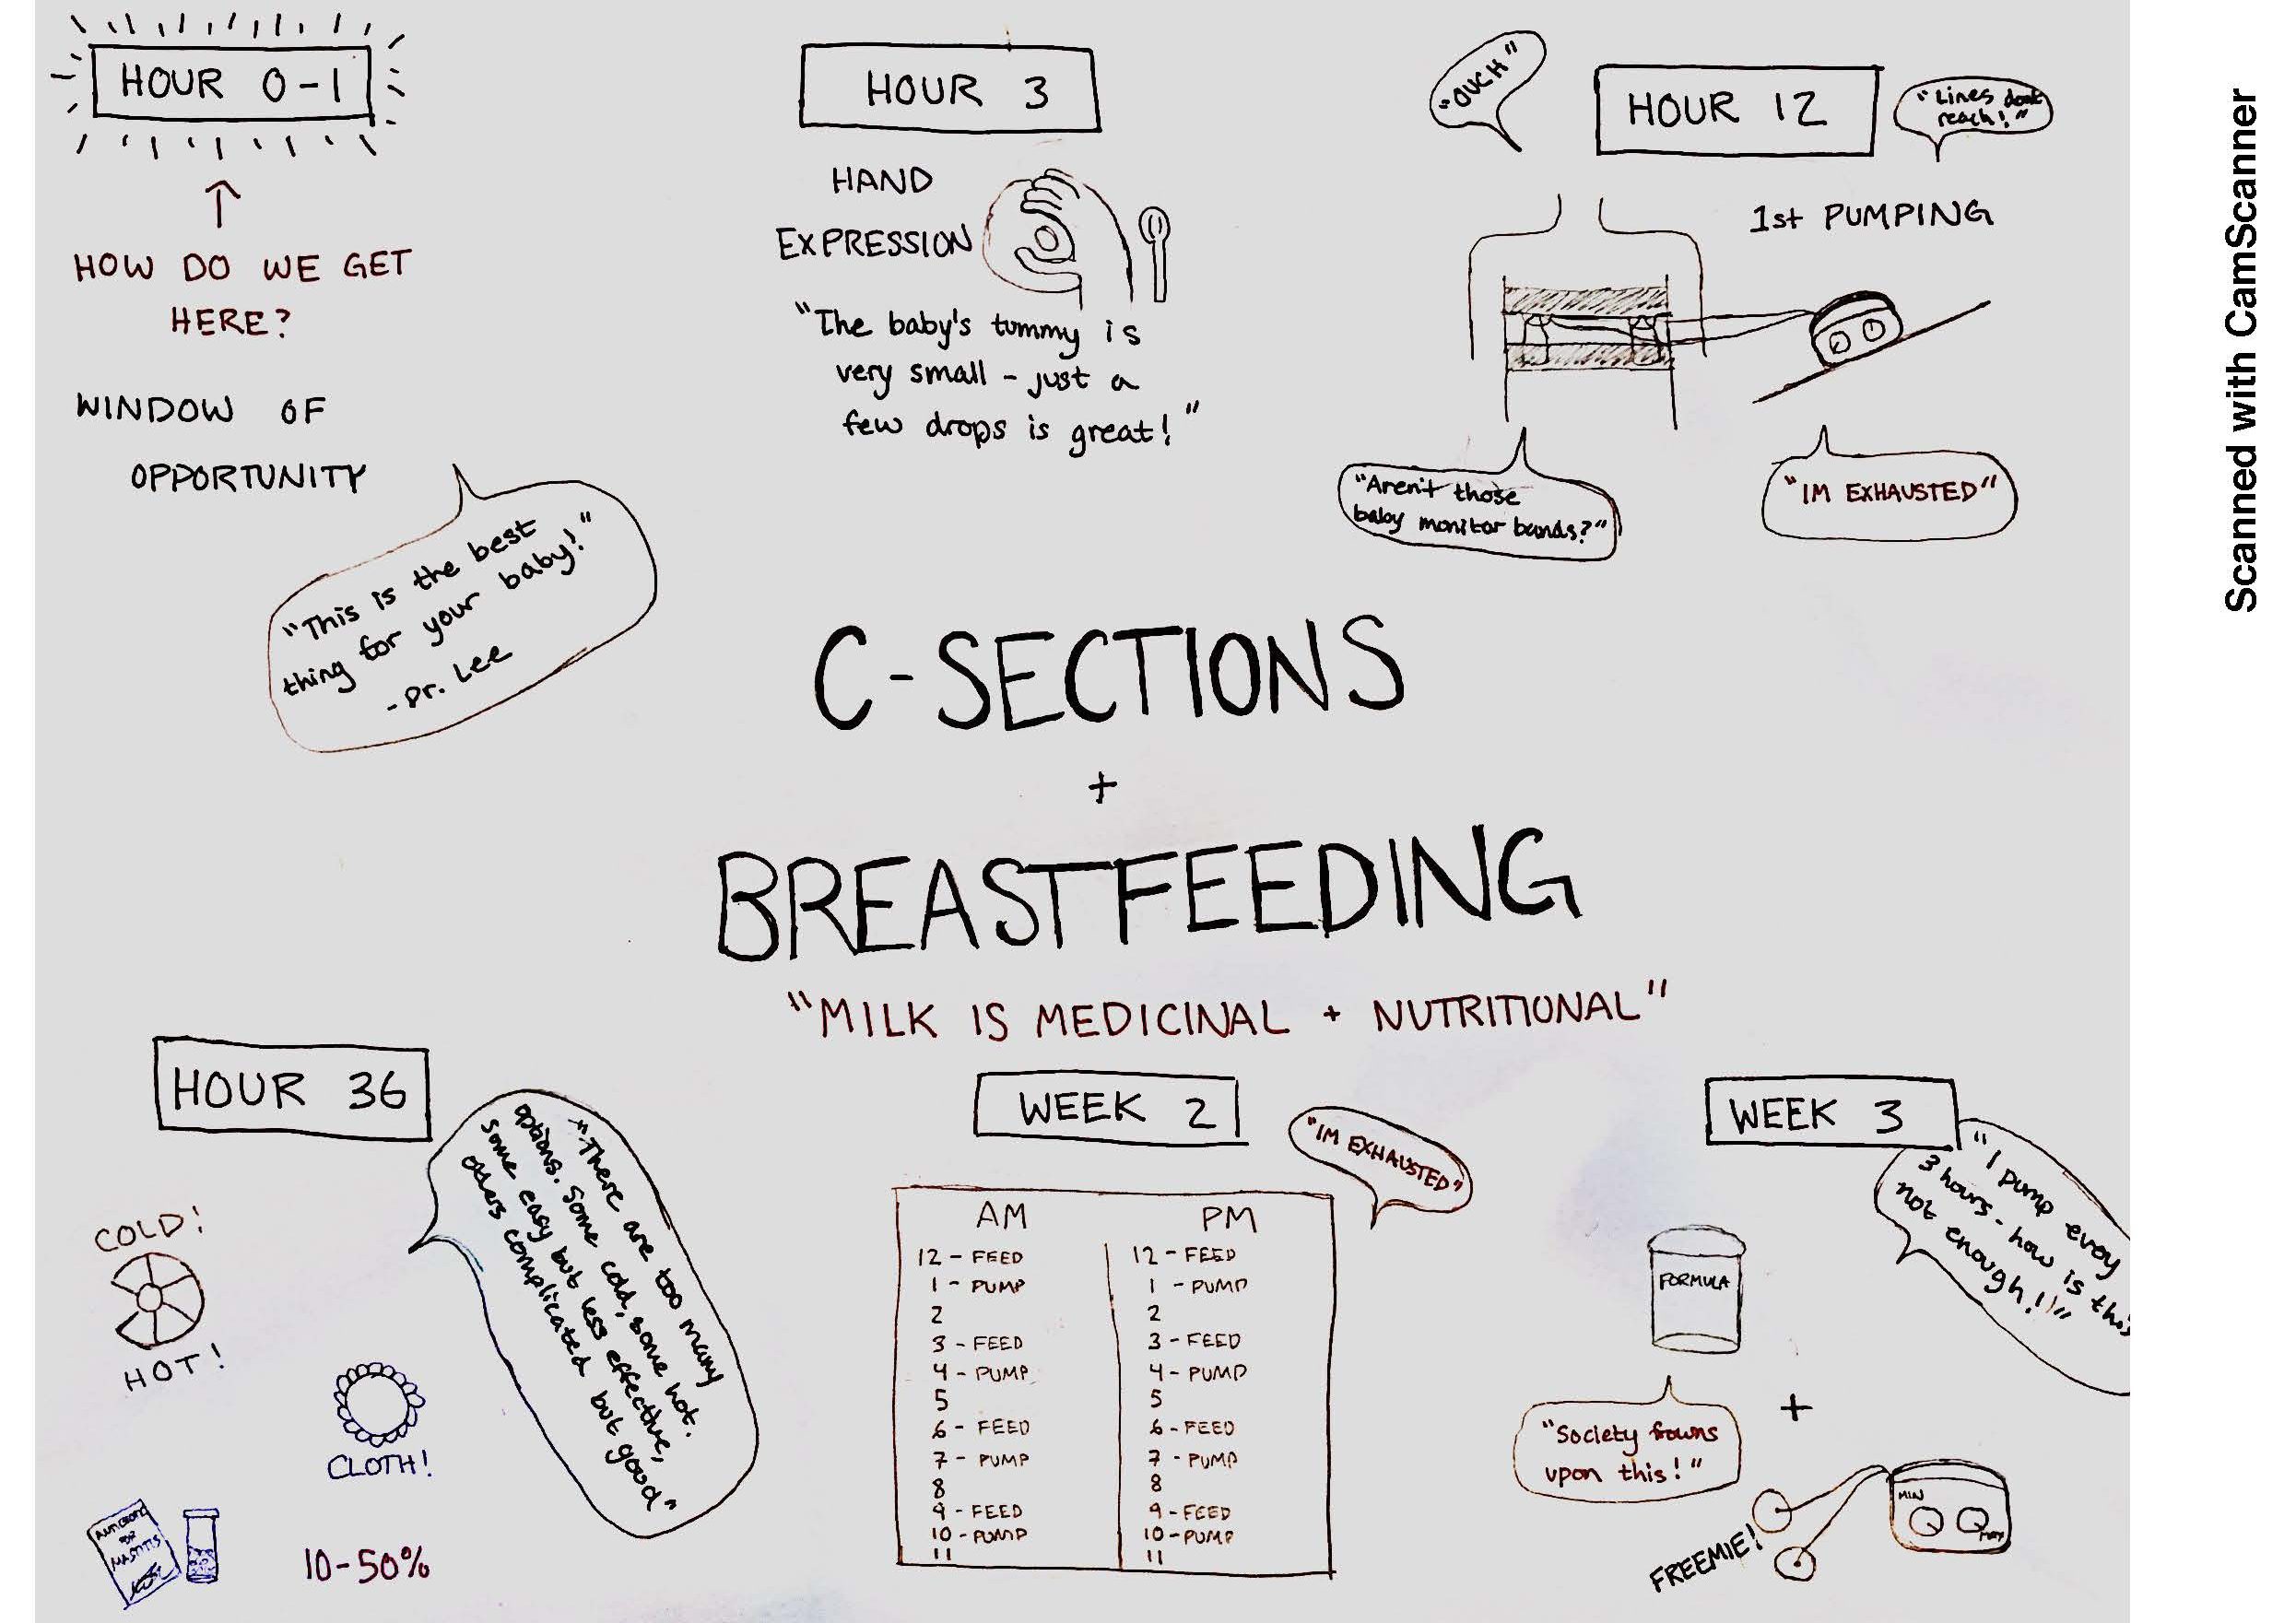 HOUR 0-1
HOW DO WE GET
HERE?
WINDOW OF
OPPORTUNITY
"This is the best
thing for your baby!"
-Dr. Lee
HOUR 3
HAND
EXPRESSION
"The baby's tummy is
very small - just a
few drops is great!"
"OUCH"
HOUR 12
"Lines dont
reach!"
1st PUMPING
"Aren't those
baby monitor bands?"
"IM EXHAUSTED"
C-SECTIONS
+
BREASTFEEDING
"MILK IS MEDICINAL + NUTRITIONAL"
HOUR 36
"There are too many
options. Some cold, some hot.
Some easy but less effective,
others complicated but good"
COLD!
HOT!
CLOTH!
FOR
MASTITIS
10-50%
WEEK 2
"IM EXHAUSTED"
AM PM
12 - FEED 12 - FEED
1 - PUMP 1 - PUMP
2 2
3 - FEED 3 - FEED
4 - PUMP 4 - PUMP
5 5
6 - FEED 6 - FEED
7 - PUMP 7 - PUMP
8 8
9 - FEED 9 - FEED
10 - PUMP 10 - PUMP
11 11
WEEK 3
"I pump every
3 hours - how is this
not enough!!"
FORMULA
"Society frowns
upon this!"
+
MIN
MAX
FREEMIE!
Scanned with CamScanner